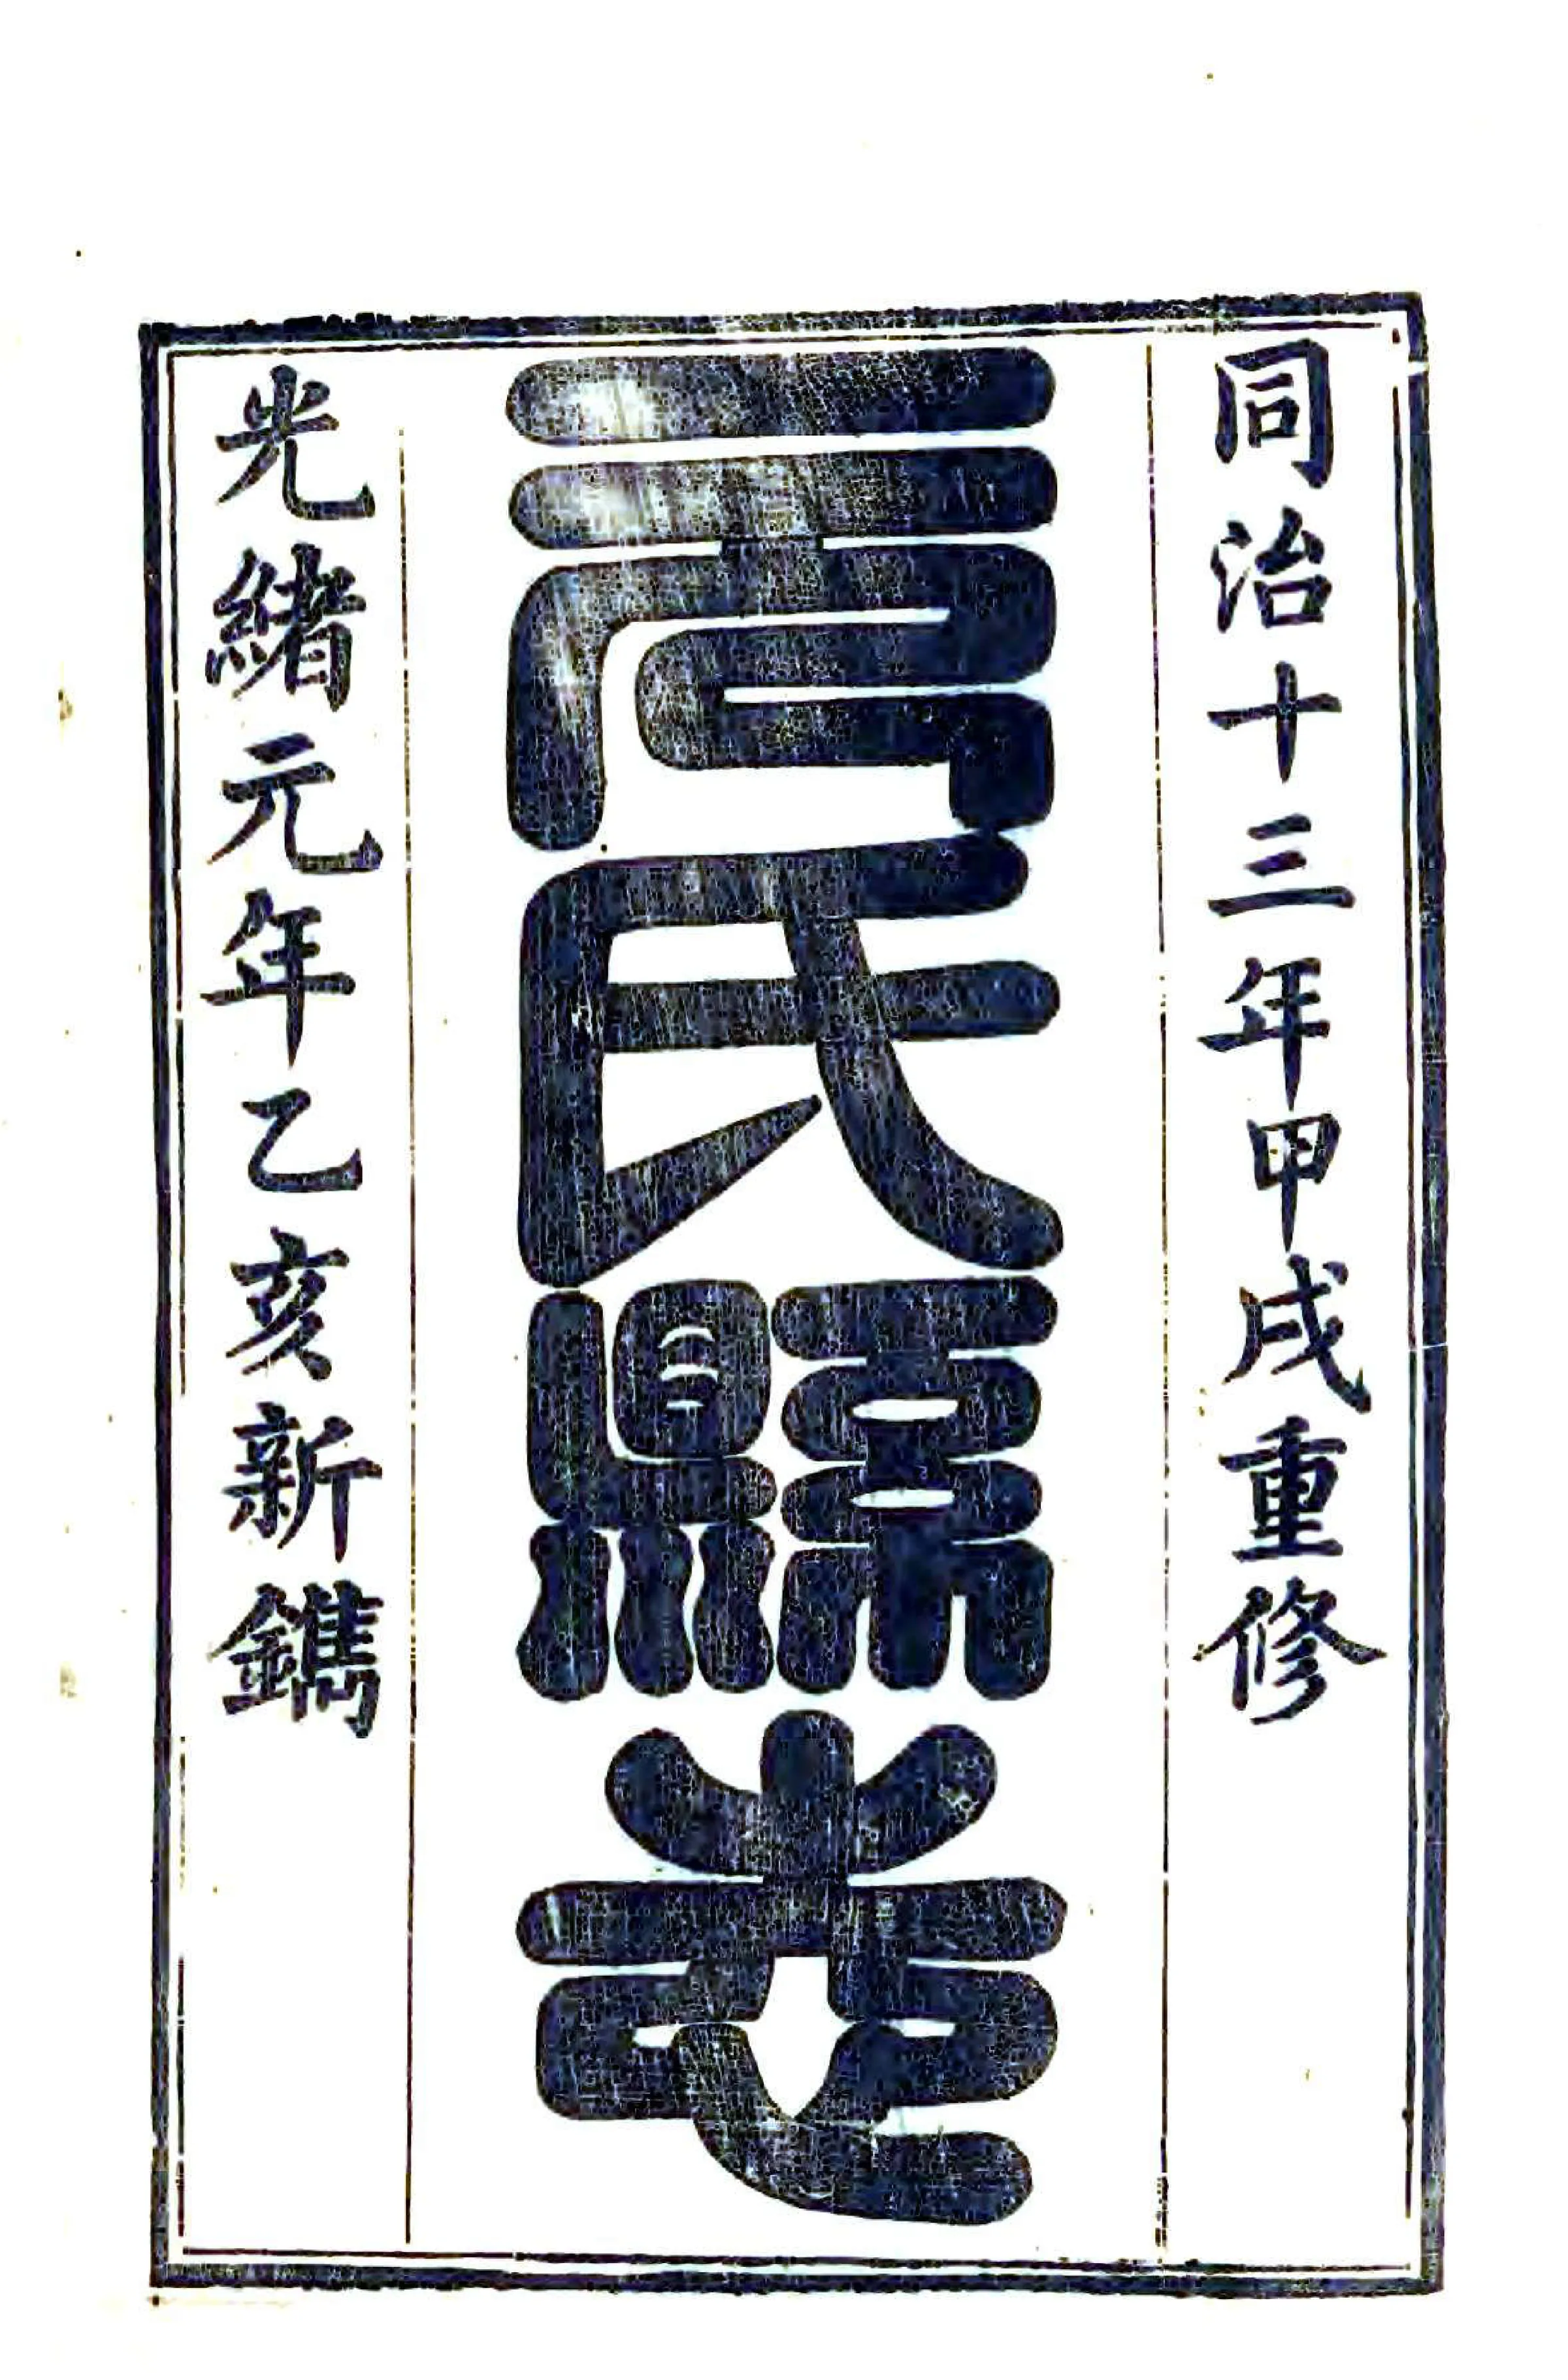 同治十三年甲戌重修
元氏縣志
光緒元年乙亥新鐫